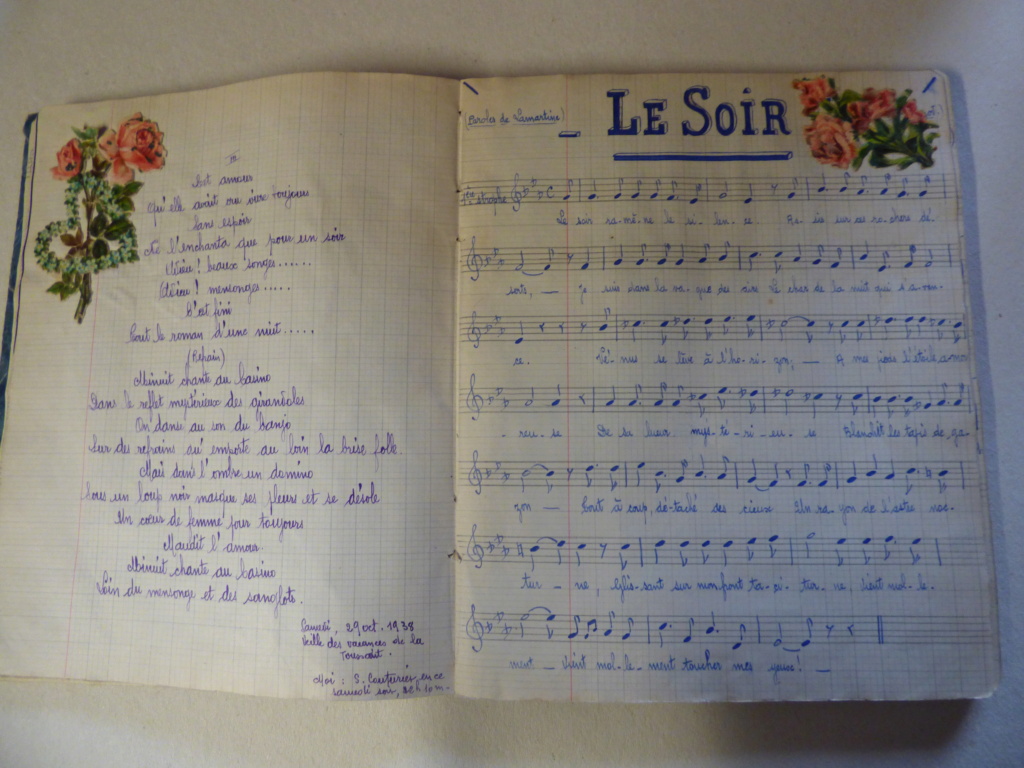 III
Cet amour
Qu'elle avait cru vivre toujours
Sans espoir
Ne l'enchanta que pour un soir
Adieu ! beaux songes......
Adieu ! mensonges.....
C'est fini
Tout le roman d'une nuit.....
(Refrain)
Minuit chante au casino
Dans le reflet mystérieux des girandoles
On danse au son du banjo
Sur des refrains qu'emporte au loin la brise folle.
Mais dans l'ombre un domino
Sous un loup noir masque ses pleurs et se désole
Un cœur de femme pour toujours
Maudit l'amour.
Minuit chante au casino
Loin du mensonge et des sanglots.
Samedi, 29 oct. 1938
Veille des vacances de la
Toussaint.
Moi : S. Couturier, en ce
samedi soir,
(Paroles de Lamartine)
LE SOIR
1ère strophe
Le soir ra-mè-ne le si-len-ce. As-sis sur ces ro-chers dé-
serts, — Je suis dans la va-gue des airs Le char de la nuit qui s'a-van-
ce. Vé-nus se lève à l'ho-ri-zon, — A mes pieds l'étoile a-mou
-reu-se De sa lueur mys-té-ri-eu-se Blanchit les tapis de ga-
zon — Tout à coup, dé-taché des cieux Un ra-yon de l'astre noc-
tur-ne, Glis-sant sur mon front ta-ci-tur-ne, Vient mol-le-
ment — Vient mol-le-ment toucher mes yeux! —